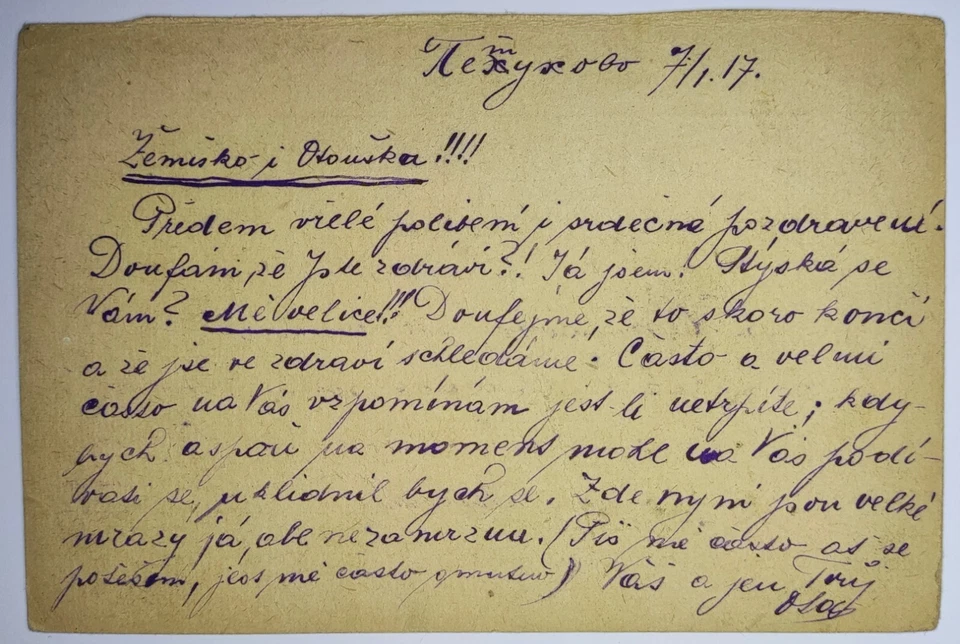 Петухово 7/1.17.
Ženiško i Otouška!!!!
Předem vřelé políbení i srdečné pozdravení.
Doufám, že Jste zdrávi?! Já jsem! Stýská se
Vám? Mě velice!!! Doufejme, že to skoro končí
a že jse ve zdraví schledáme. Často a velmi
často na Vás vzpomínám jest-li netrpíte; kdy-
bych aspoň na moment mohl na Vás podí-
vati se, uklidnil bych se. Zde nyní jsou velké
mrazy já, ale nezamrznu. (Piš mě často ať se
potěším, jest mě často smutno) Váš a jen Tvůj
Ota